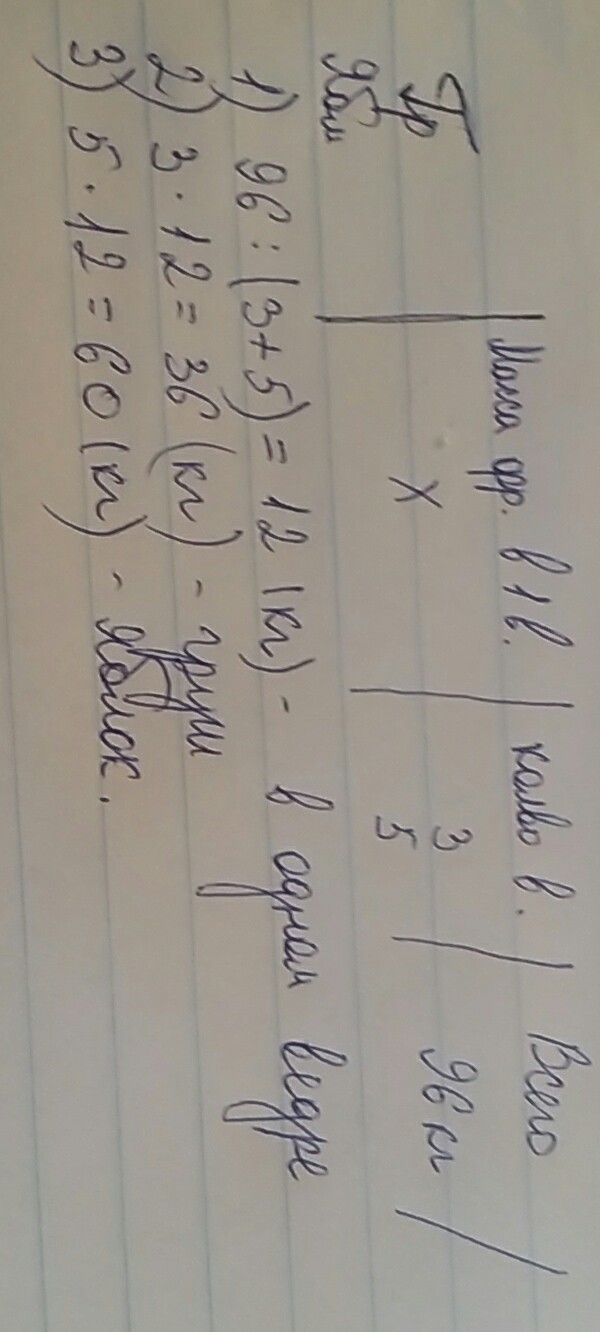 Масса фр. в 1 в. | колво в. | Всего
Гр | X | 3 | 96 кг
Ябл | 5
1) 96 : (3+5) = 12 (кг) - в одном ведре
2) 3 · 12 = 36 (кг) - груш
3) 5 · 12 = 60 (кг) - яблок.